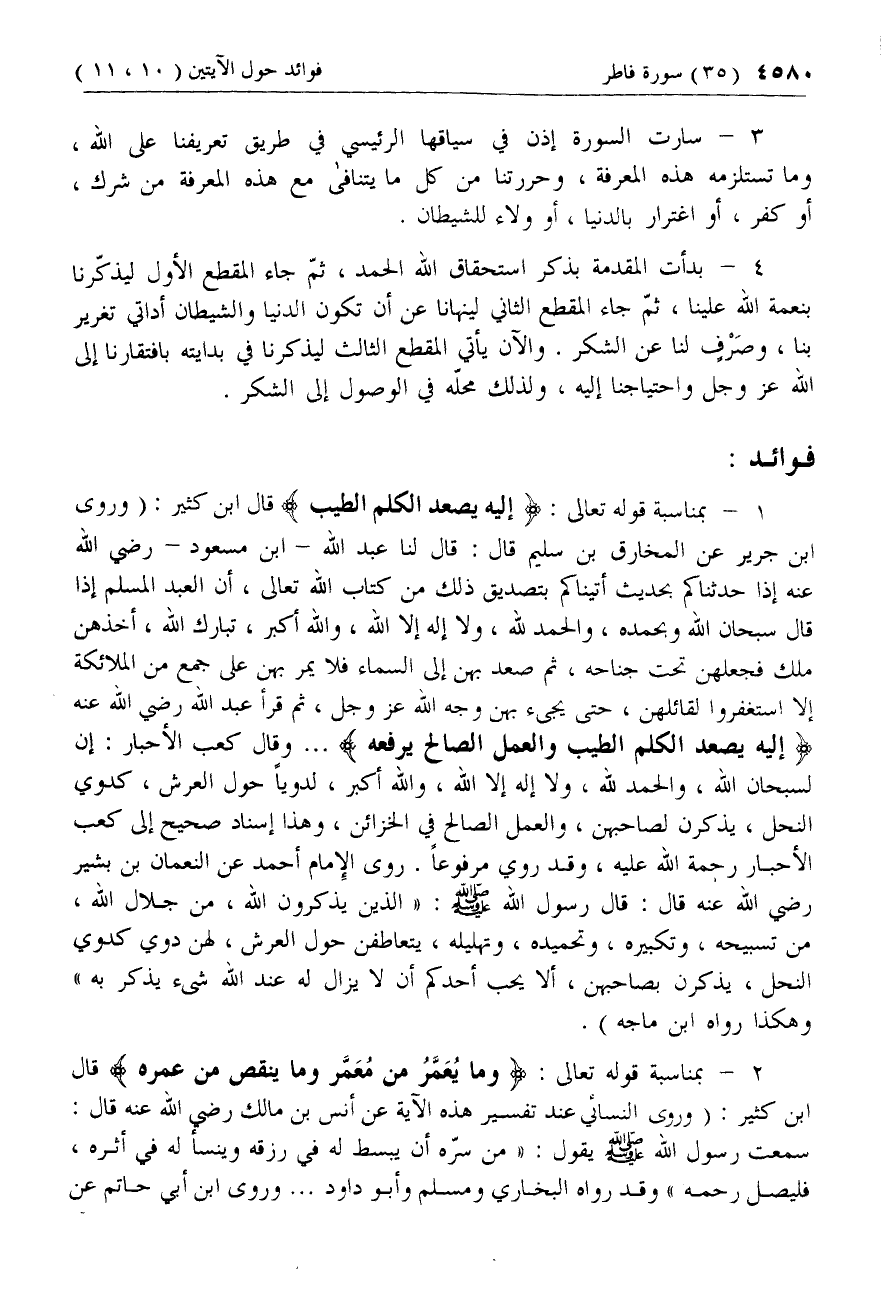 ٤٥٨٠ (٣٥) سورة فاطر فوائد حول الآيتين ( ١٠ ، ١١ )
٣ – سارت السورة إذن في سياقها الرئيسي في طريق تعريفنا على الله ،
وما تستلزمه هذه المعرفة ، وحررتنا من كل ما يتنافىٰ مع هذه المعرفة من شرك ،
أو كفر ، أو اغترار بالدنيا ، أو ولاء للشيطان .
٤ – بدأت المقدمة بذكر استحقاق الله الحمد ، ثمّ جاء المقطع الأول ليذكّرنا
بنعمة الله علينا ، ثمّ جاء المقطع الثاني لينهانا عن أن تكون الدنيا والشيطان أداتي تغرير
بنا ، وصَرْفٍ لنا عن الشكر . والآن يأتي المقطع الثالث ليذكرنا في بدايته بافتقارنا إلى
الله عز وجل واحتياجنا إليه ، ولذلك محلّه في الوصول إلى الشكر .
فوائد :
١ – بمناسبة قوله تعالى : ﴿ إليه يصعد الكلم الطيب ﴾ قال ابن كثير : ( وروى
ابن جرير عن المخارق بن سليم قال : قال لنا عبد الله – ابن مسعود – رضي الله
عنه إذا حدثناكم بحديث أتيناكم بتصديق ذلك من كتاب الله تعالى ، أن العبد المسلم إذا
قال سبحان الله وبحمده ، والحمد لله ، ولا إله إلا الله ، والله أكبر ، تبارك الله ، أخذهن
ملك فجعلهن تحت جناحه ، ثم صعد بهن إلى السماء فلا يمر بهن على جمع من الملائكة
إلا استغفروا لقائلهن ، حتى يجيء بهن وجه الله عز وجل ، ثم قرأ عبد الله رضي الله عنه
﴿ إليه يصعد الكلم الطيب والعمل الصالح يرفعه ﴾ ... وقال كعب الأحبار : إن
لسبحان الله ، والحمد لله ، ولا إله إلا الله ، والله أكبر ، لدوياً حول العرش ، كدوي
النحل ، يذكرن لصاحبهن ، والعمل الصالح في الخزائن ، وهذا إسناد صحيح إلى كعب
الأحبار رحمة الله عليه ، وقد روي مرفوعاً . روى الإمام أحمد عن النعمان بن بشير
رضي الله عنه قال : قال رسول الله ﷺ : « الذين يذكرون الله ، من جلال الله ،
من تسبيحه ، وتكبيره ، وتحميده ، وتهليله ، يتعاطفن حول العرش ، لهن دوي كدوي
النحل ، يذكرن بصاحبهن ، ألا يحب أحدكم أن لا يزال له عند الله شيء يذكر به »
وهكذا رواه ابن ماجه ) .
٢ – بمناسبة قوله تعالى : ﴿ وما يُعَمَّرُ من مُعَمَّر وما ينقص من عمره ﴾ قال
ابن كثير : ( وروى النسائي عند تفسير هذه الآية عن أنس بن مالك رضي الله عنه قال :
سمعت رسول الله ﷺ يقول : « من سرّه أن يبسط له في رزقه وينسأ له في أثره ،
فليصل رحمه » وقد رواه البخاري ومسلم وأبو داود ... وروى ابن أبي حاتم عن